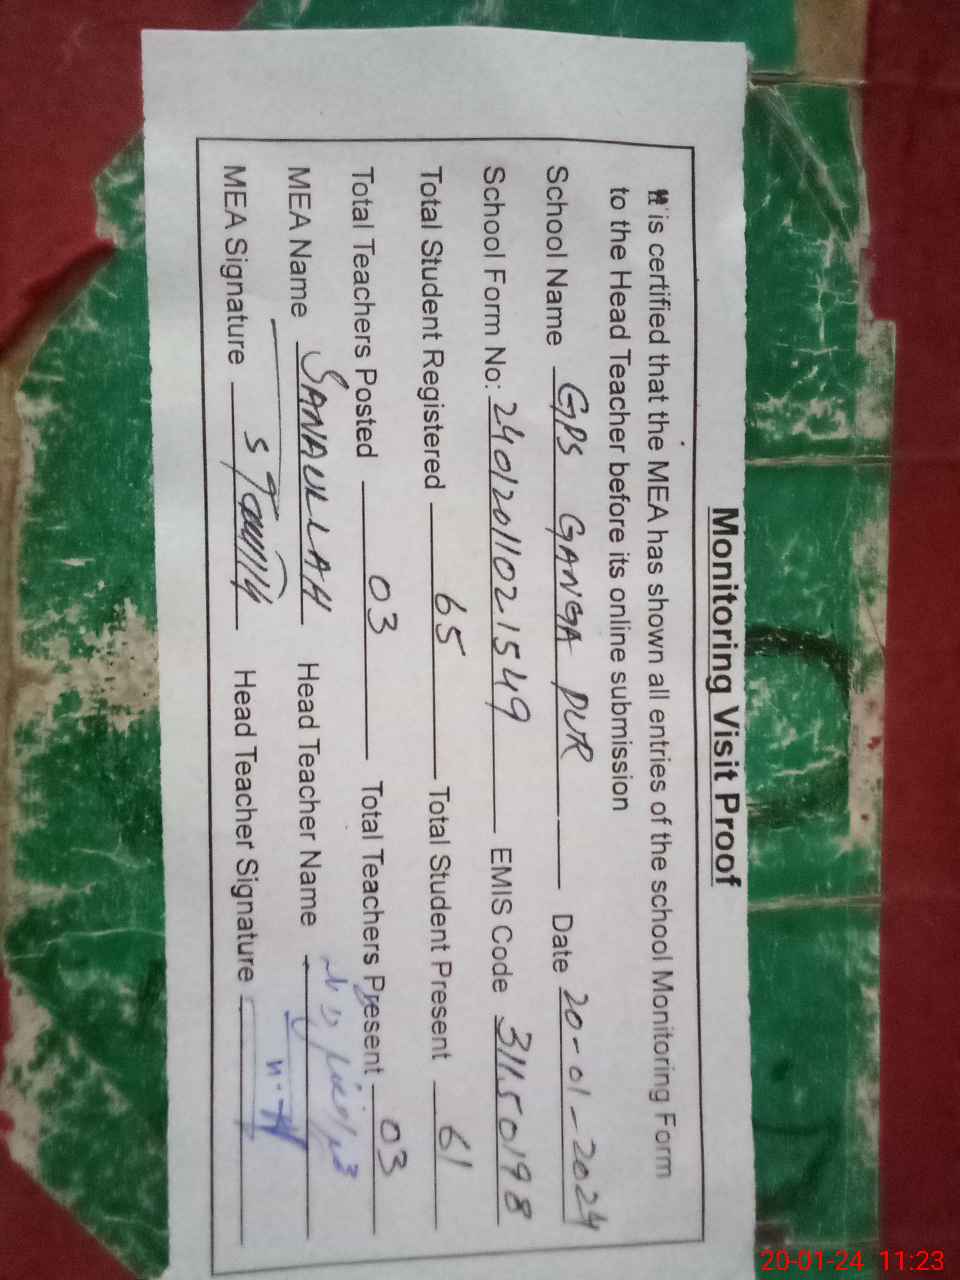 Monitoring Visit Proof
It is certified that the MEA has shown all entries of the school Monitoring Form
to the Head Teacher before its online submission
School Name GPS GANGA PUR Date 20-01-2024
School Form No: 24012011021549 EMIS Code 31150198
Total Student Registered 65 Total Student Present 61
Total Teachers Posted 03 Total Teachers Present 03
MEA Name SANAULLAH Head Teacher Name
MEA Signature Head Teacher Signature
20-01-24 11:23